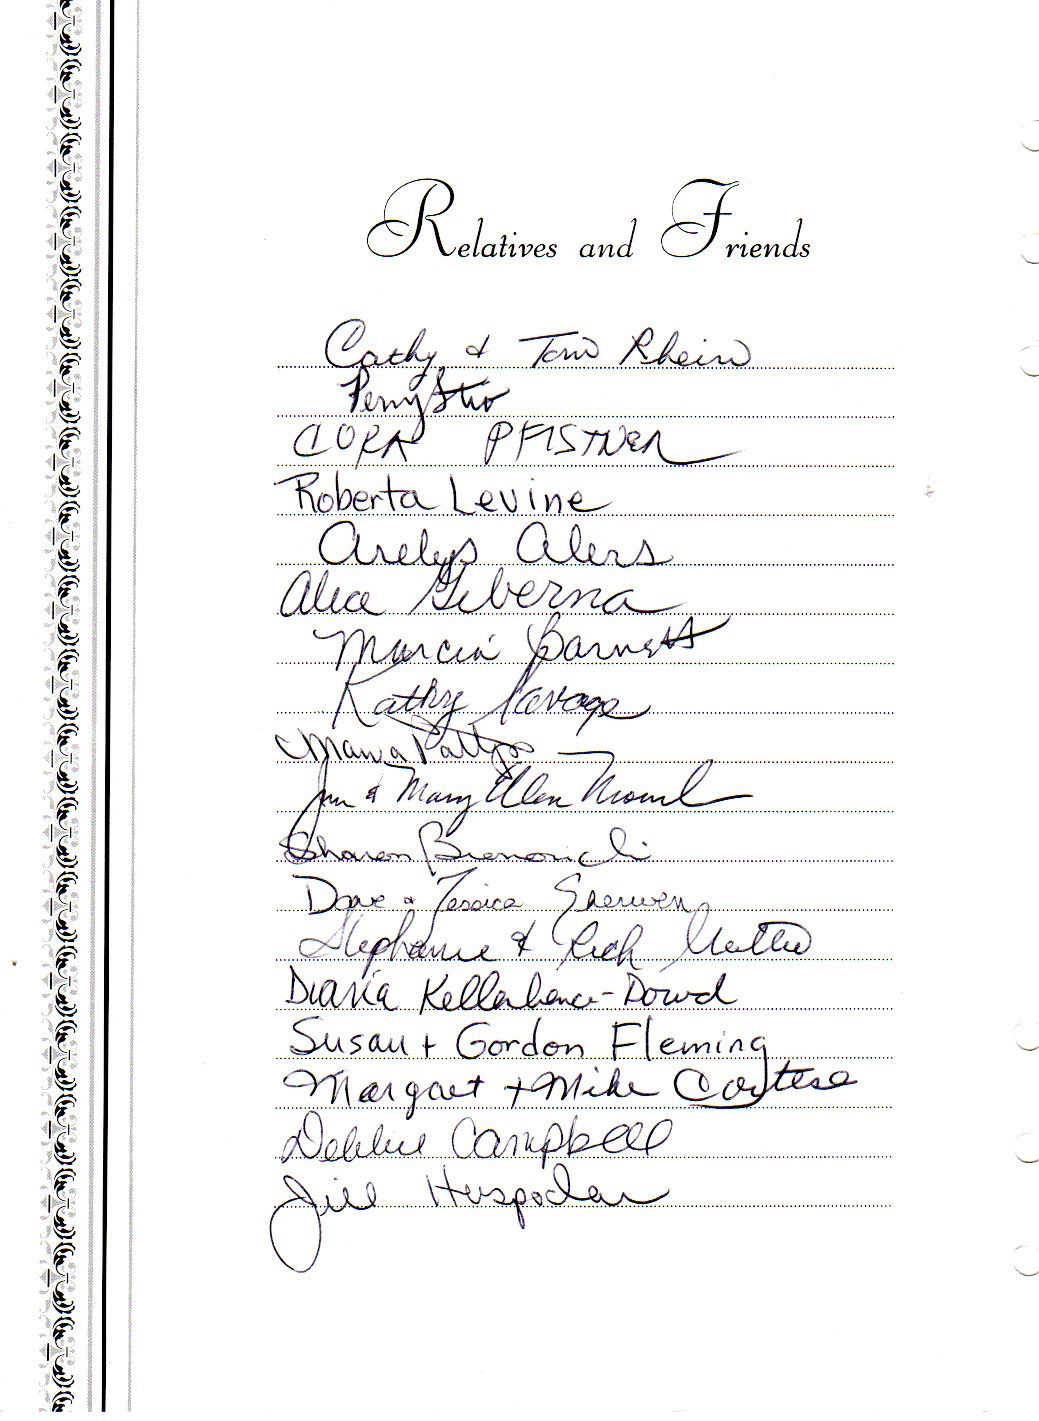 Relatives and Friends
Cathy & Tom Rhein
Perry
CORA PFISTNER
Roberta Levine
Arelys Alers
Alice Giberna
Marcia Barnett
Kathy Savage
Maria
Jim & Mary Ellen
Sharon
Dave & Jessica Sherwen
Stephanie & Rich
Diana
Susan + Gordon Fleming
Margaret + Mike Cortese
Debbie Campbell
Jill Huspodar